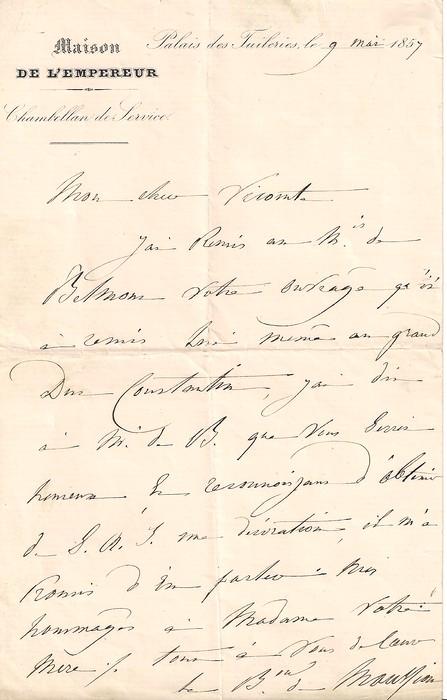 Maison
DE L'EMPEREUR
Chambellan de Service.
Palais des Tuileries, le 9 mai 1857
Mon cher Vicomte
j'ai Remis au M.is de
Belmont votre ouvrage qu'il
a remis lui même au grand
Duc Constantin, j'ai dit
à M. de B. que vous seriez
heureux et reconnoissant d'obtenir
de S. A. I. une décoration, il m'a
Promis d'en parler. mes
hommages à Madame votre
mère, tout à vous de coeur
le B.on de